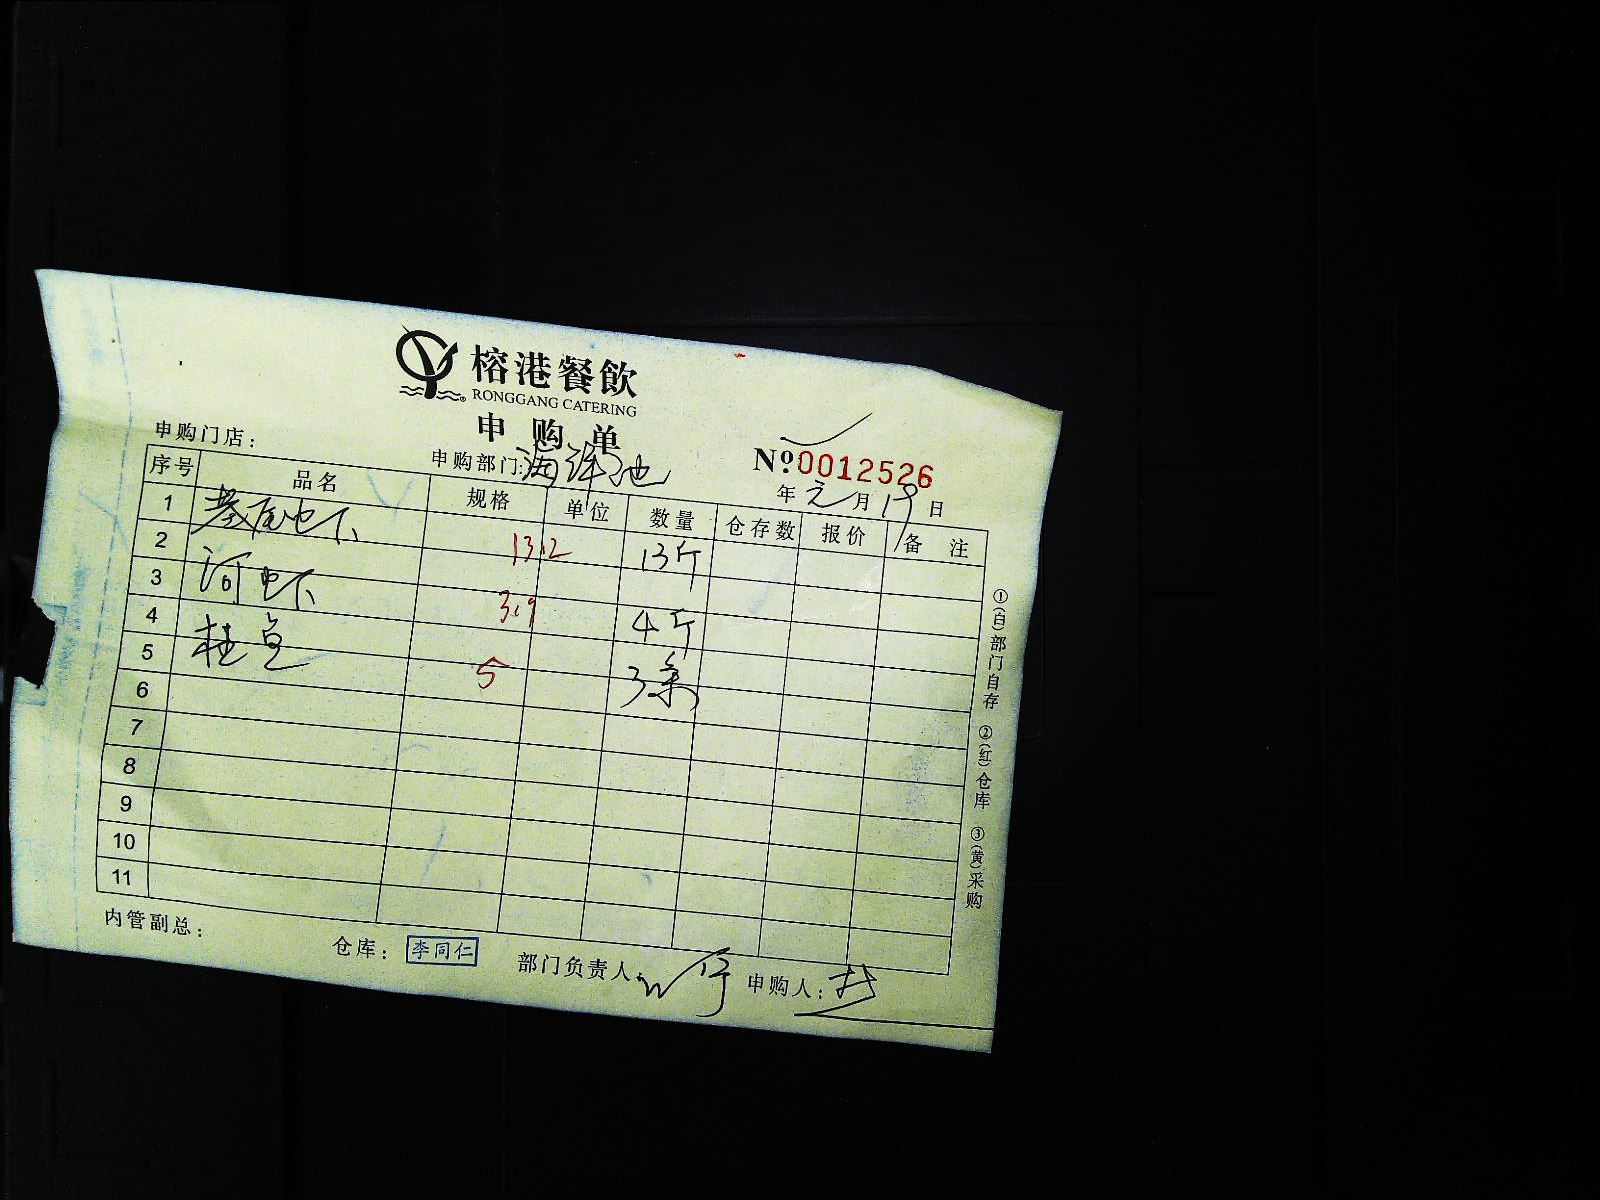 榕港餐飲
RONGGANG CATERING
申购单
申购门店：
申购部门：海洋池
№0012526
年 元 月 19 日
序号 品名 规格 单位 数量 仓存数 报价 备注
1 基尾虾
2 13.2 13斤
3 河虾
4 3.9 4斤
5 桂鱼 5 3条
6
7
8
9
10
11
①(白)部门自存 ②(红)仓库 ③(黄)采购
内管副总：
仓库：李同仁
部门负责人：
申购人：